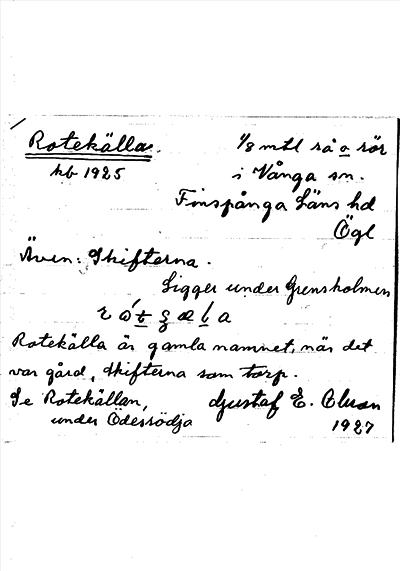 Rotekälla.
hb 1925
1/8 mtl rå o rör
i Vånga sn.
Finspånga Läns hd
Ögl
Även: Skifterna.
Ligger under Grensholmen
Rotekälla är gamla namnet, när det
var gård, Skifterna som torp.
Se Rotekällan,
under Ödessödja
Gustaf E. Olsson
1927